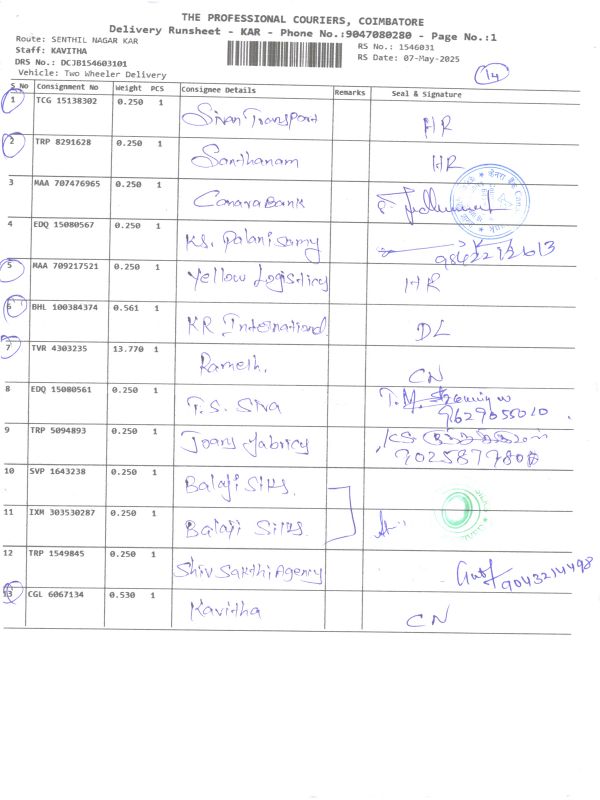 THE PROFESSIONAL COURIERS, COIMBATORE
Delivery Runsheet - KAR - Phone No.:9047080280 - Page No.:1
Route: SENTHIL NAGAR KAR
Staff: KAVITHA RS No.: 1546031
DRS No.: DCJB154603101 RS Date: 07-May-2025
Vehicle: Two Wheeler Delivery 14
S No Consignment No Weight PCS Consignee Details Remarks Seal & Signature
1 TCG 15138302 0.250 1 Sivan Transport HR
2 TRP 8291628 0.250 1 Santhanam HR
3 MAA 707476965 0.250 1 Canara Bank
4 EDQ 15080567 0.250 1 KS. Palanisamy
5 MAA 709217521 0.250 1 Yellow Logistics HR
6 BHL 100384374 0.561 1 KR International DL
7 TVR 4303235 13.770 1 Ramesh. CN
8 EDQ 15080561 0.250 1 T.S. Siva T.M.
9629055010
9 TRP 5094893 0.250 1 Joans Fabrics
10 SVP 1643238 0.250 1 Balaji Silks.
11 IXM 303530287 0.250 1 Balaji Silks
12 TRP 1549845 0.250 1 Shiv Sakthi Agency 9043214498
13 CGL 6067134 0.530 1 Kavitha CN